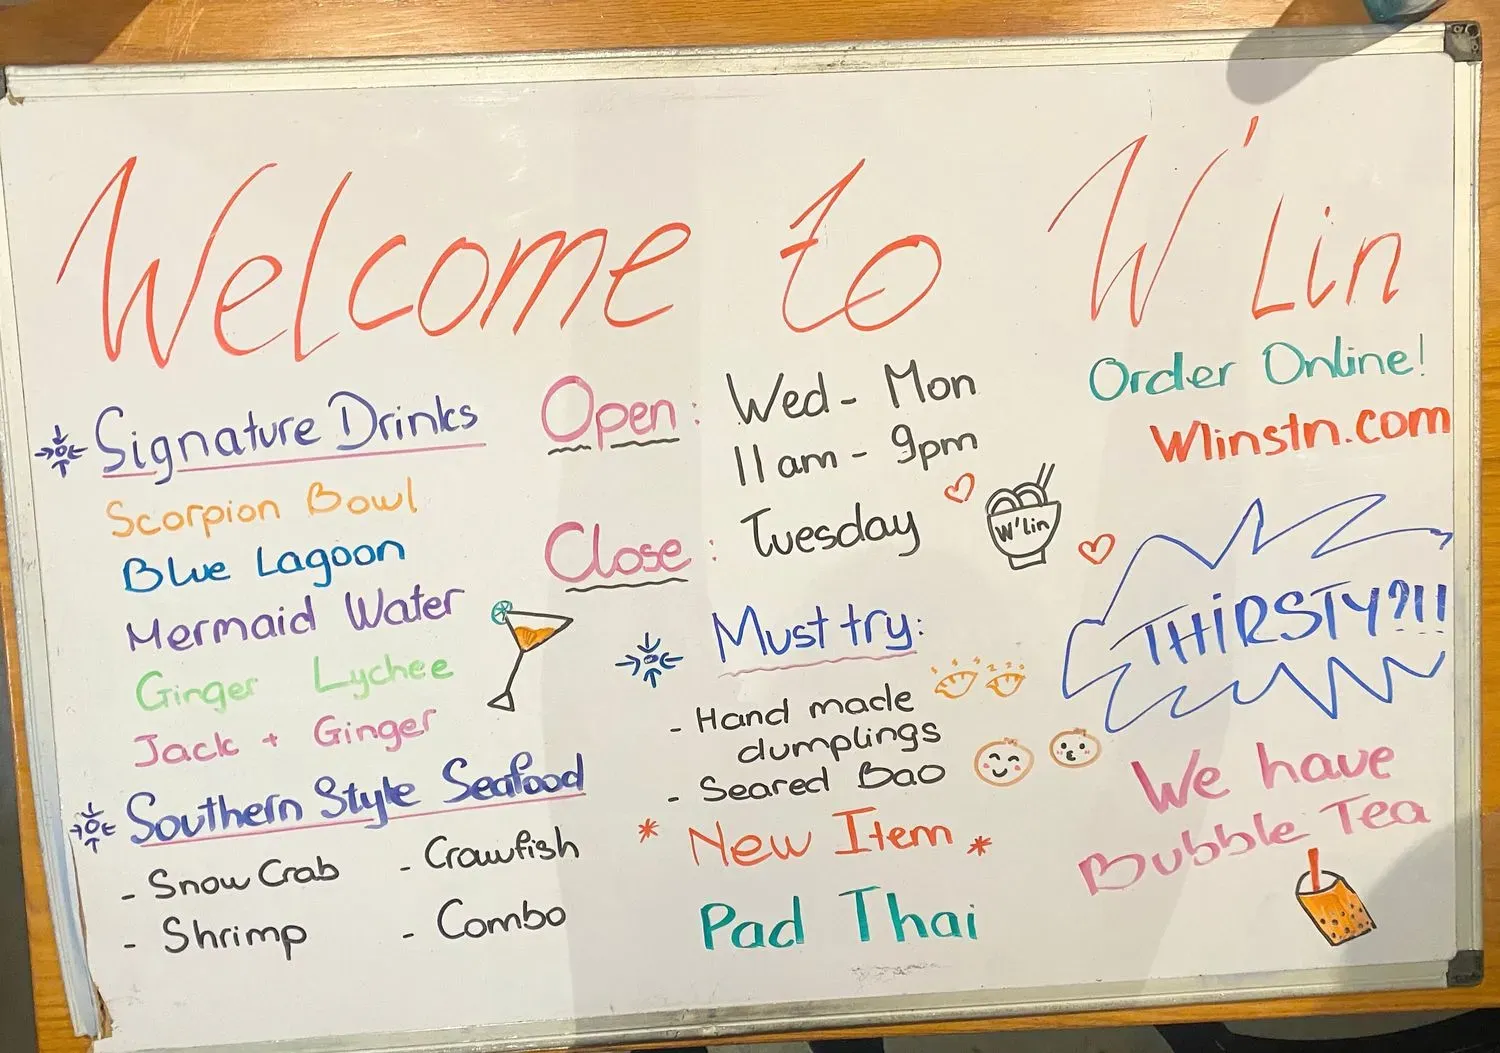 Welcome to W'Lin
Signature Drinks
Scorpion Bowl
Blue Lagoon
Mermaid Water
Ginger Lychee
Jack + Ginger
Southern Style Seafood
- Snow Crab
- Crawfish
- Shrimp
- Combo
Open: Wed - Mon
11am - 9pm
Close: Tuesday
W'lin
Must try:
- Hand made
dumplings
- Seared Bao
* New Item *
Pad Thai
Order Online!
Wlinstn.com
THiRSTY?!!
We have
Bubble Tea